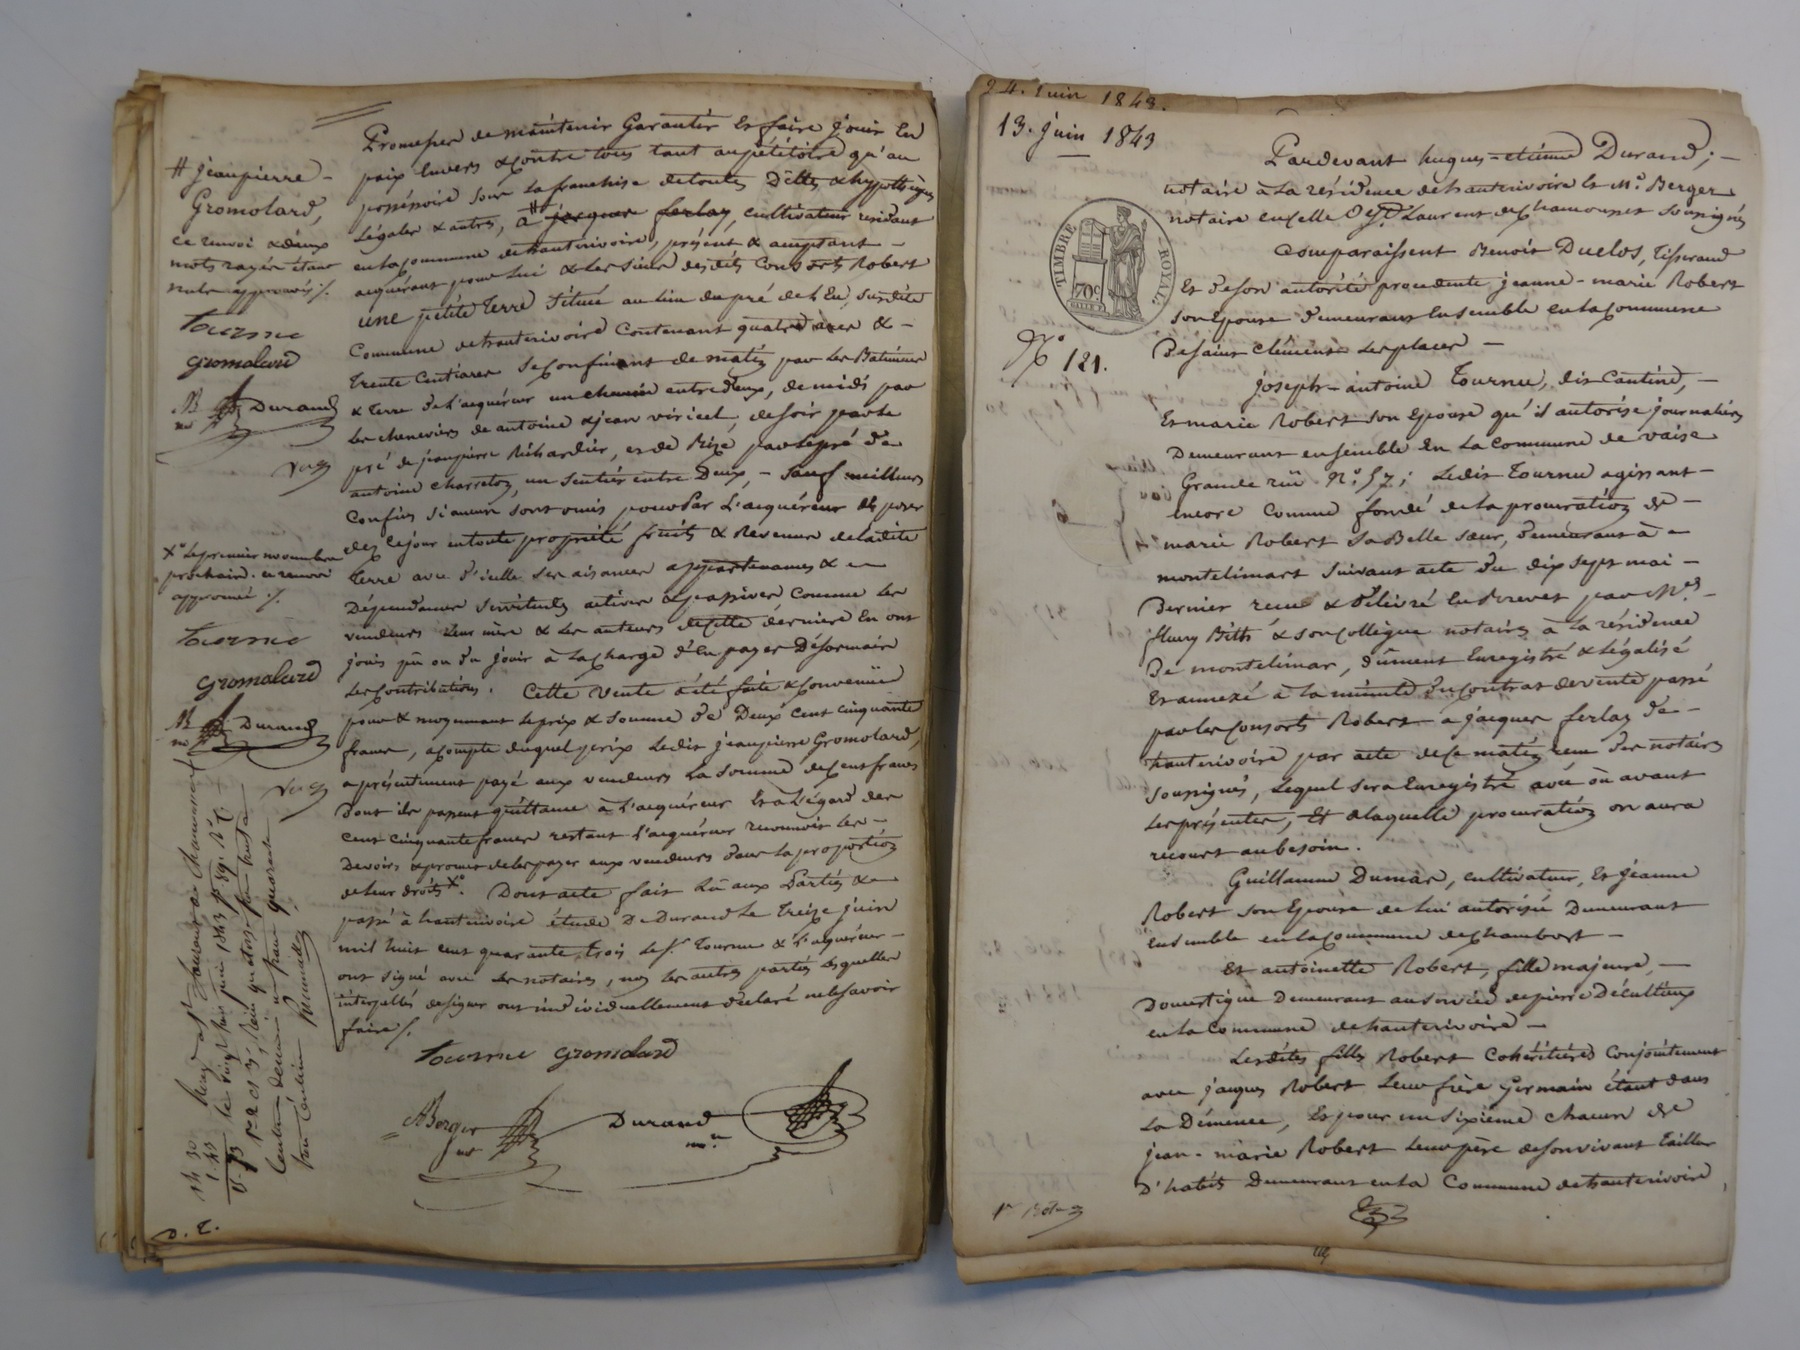 Promesses de maintenir Garantir et faire jouir en
paix envers & contre tous tant au pétitoire qu'au
possessoire sous la franchise de toutes Dettes & hypothèques
Légales & autres, à # jacques ferlay, cultivateur résidant
en la commune de hauterivoire, présent & acceptant -
acquérant pour lui & les siens desdits Consorts Robert
une petite terre située au lieu du pré de susdite
Commune de hauterivoire Contenant quatre ares & -
trente Centiares se Confinant de matin par les Batiments
& terre de l'acquéreur un chemin entre deux, de midi par
les chenevières de antoine & jean viricel, de soir par le
pré de jeanpierre Richardier, et de Bize par le pré de
antoine charretoy, un sentier entre Deux, - Sauf meilleurs
Confins si aucuns sont omis pour par L'acquéreur
dez ce jour en toute propriété fruits & Revenus de ladite
terre avec d'icelle ses aisances appartenances & -
Dépendances servitudes actives & passives Comme les
vendeurs leur mère & les auteurs de cette dernière en ont
joui pû ou du jouir à la charge d'en payer Désormais
les Contributions. Cette Vente a été faite & Convenue
pour & moyennant le prix & somme de Deux Cent cinquante
francs, acompte duquel prix Ledit jeanpierre Gromolard,
a présentement payé aux vendeurs la somme de Cent francs
Dont ils passent quittance à l'acquéreur Et à l'égard des
cent cinquante francs restant l'acquéreur reconnoit les -
Devoir & promet de les payer aux vendeurs dans la proportion
de leur droits X°. Dont acte fait lû aux Parties &
passé à hauterivoire étude De Durand Le treize juin
mil huit cent quarante trois le sr. Tournu & l'acquéreur -
ont signé avec les notaires, non les autres parties lesquelles
interpellés de signer ont individuellement déclaré ne le savoir
faire /.
Tournu gromolard
Berger Durand
nre
# jeanpierre -
Gromolard,
ce renvoi & deux
mots rayés étant
nuls approuvés /.
Tournu
gromolard
B Durand
X° le premier novembre
prochain. ce renvoi
approuvé /.
Tournu
gromolard
B Durand
14 30
1 43
D. T.
24. juin 1843.
13. juin 1843
TIMBRE ROYAL
70 C
N° 121.
Pardevant hugues-etienne Durand; -
notaire à la résidence de hauterivoire et Me. Berger
notaire en celle de St. Laurent de chamousset soussignés
Comparaissent Benoit Duclos, Tisserand
Et de son autorité procedente jeanne-marie Robert
son Epouse demeurans Ensemble en la Commune
De saint clément les places -
joseph-antoine Tournu, dit Cantine, -
Et marie Robert son Epouse qu'il autorise journaliers
Demeurant ensemble en la Commune de vaise
Grande rüe N° 57; Ledit Tournu agissant -
encore Comme fondé de la procuration de -
marie Robert sa Belle sœur, demeurant à -
montelimart suivant acte du dix sept mai -
Dernier reçu & délivré En Brevet par Me. -
fleury Bith & son collègue notaires à la résidence
De montelimar, dûment Enregistré & légalisé
Et annexé à la minute du contrat de vente passé
par les Consorts Robert à jacques ferlay de -
hauterivoire par acte de ce matin reçu des notaires
soussignés, lequel sera Enregistré avec ou avant
les présentes, Et à laquelle procuration on aura
recours au besoin.
Guillaume Dumas, cultivateur, Et jeanne
Robert son Epouse de lui autorisée Demeurant
Ensemble en la commune de Chambost -
Et antoinette Robert, fille majeure, -
Domestique Demeurant au service de pierre Décultieux
en la Commune de hauterivoire -
Lesdites filles Robert Cohéritières Conjointement
avec jacques Robert leur frère Germain étant dans
La Démence, Et pour un sixième chacun de
jean-marie Robert leur père de son vivant Tailleur
D'habits Demeurant en la Commune de hauterivoire